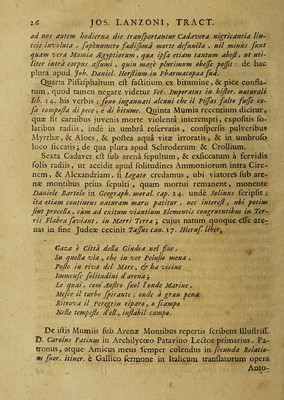 26 JOS. LANZONI, TRACT.
ad nos autem hodierna die transportantur Cadavera nigricantia lin-
teis involuta, sæpenumero fœdissimâ morte defuncta, nil minus sunt
quàm vera Momia Ægyptiorum, qua ipsa etiam tantum abest, ut uti-
liter intrà corpus assumi, quin magè plurimum obesse possit: de hac
plura apud Joh. Daniel. Horstium in Pharmacopæa sud.
Quarta Pissasphaltum est factitium ex bitumine, & pice confla-
tum, quod tamen negare videtur Fer. Imperatus in histor. naturali
lib. 14. his verbis; sono ingannati alcuni che il Pissas falto fusse co-
sa composta di pece, e di bitume. Quinta Mumia recentium dicitur,
quæ fit carnibus juvenis morte violentâ interempti, expositis so-
laribus radiis, indè in umbrâ reservatis, conspersis pulveribus
Myrrhæ, & Aloes, & postea aquâ vitæ irroratis, & in umbroso
loco siccatis; de qua plura apud Schroderum & Crollium.
Sexta Cadaver est sub arenâ sepultum, & exsiccatum à fervidis
solis radiis, ut accidit apud solitudines Ammoniorum intra Cire-
nem, & Alexandriam, si Legato credamus, ubi viatores sub are-
næ montibus prius sepulti, quàm mortui remanent, monente
Daniele Bartolo in Geograph. moral. cap. 24. unde Solinus scripsit;
ita etiam continens naturam maris patitur, nec interest, ubi potius
sint procella, cùm ad exitum viantium Elementis congruentibus in Ter-
ris Flabra saviant; in Marri Terra; cujus natum quoque esse are-
nas in fine Judeæ cecinit Tassus can. 17. Hierus. liber,
Gaza è Città della Giudea nel fine.
Su quella via, che in ver Pelusio mena.
Posto in riva del Mare, & ha vicine
Immense solitudini d'arena;
Le quai, com' Austro suol l'onde Marine,
Mesce il turbo spirante; onde à gran pena
Ritrova il Peregrin riparo, e scampo
Nelle tempeste d'ell, instabil campo.
De istis Mumiis sub Arenæ Montibus repertis scribens Illustriss.
D. Carolus Patinus in Archilycæo Patavino Lector primarius, Pa-
tronus, atque Amicus meus semper colendus in secunda Relatio-
ne suor. itiner. è Gallico sermone in Italicum translatorum opera
Anto-